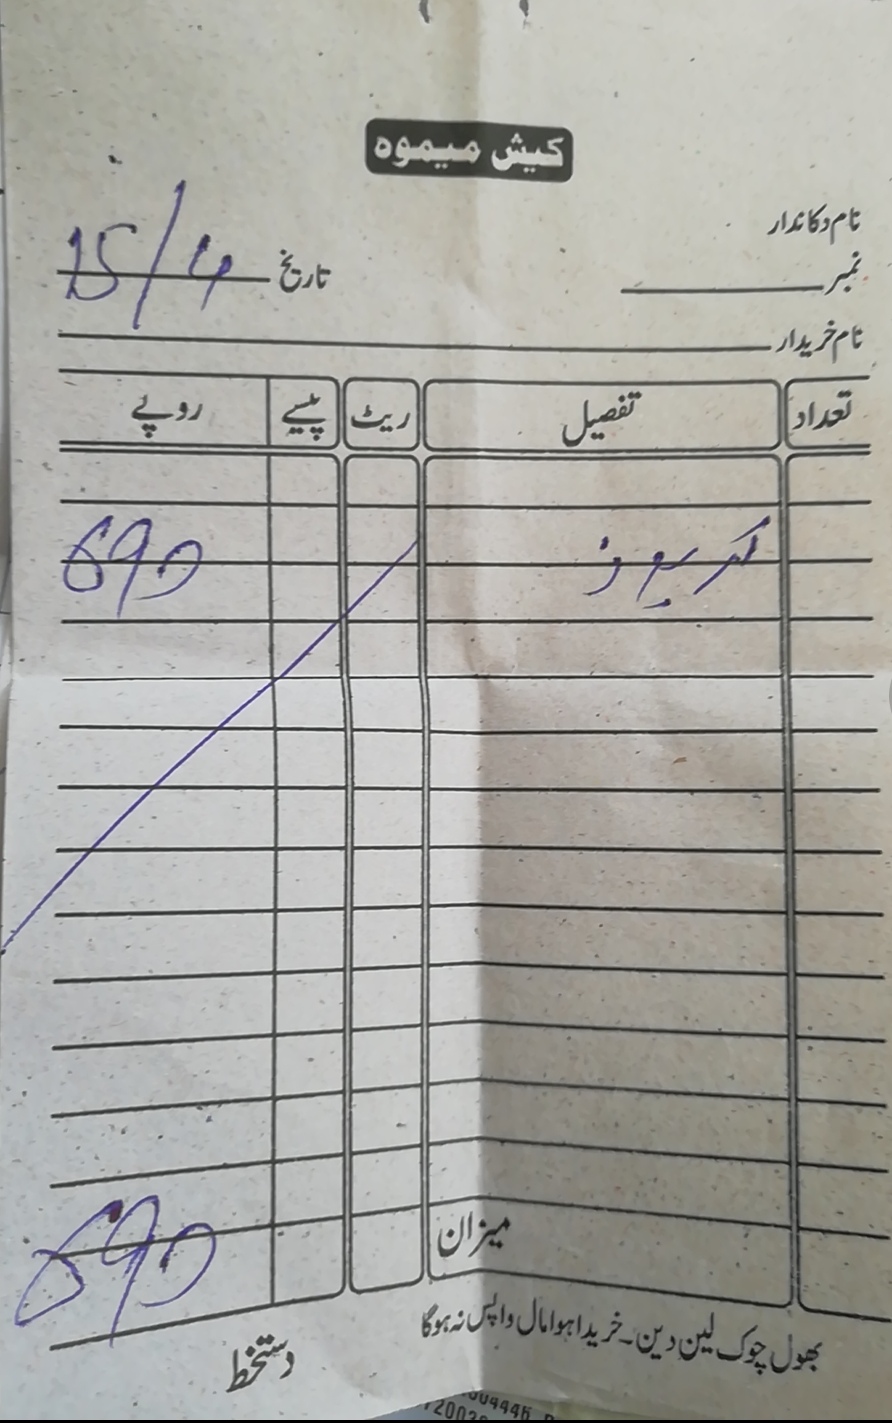 کیش میمو
نام دکاندار
نمبر
تاریخ 15/4
نام خریدار
تعداد تفصیل ریٹ پیسے روپے
690
میزان 690
بھول چوک لین دین۔ خریدا ہوا مال واپس نہ ہوگا
دستخط